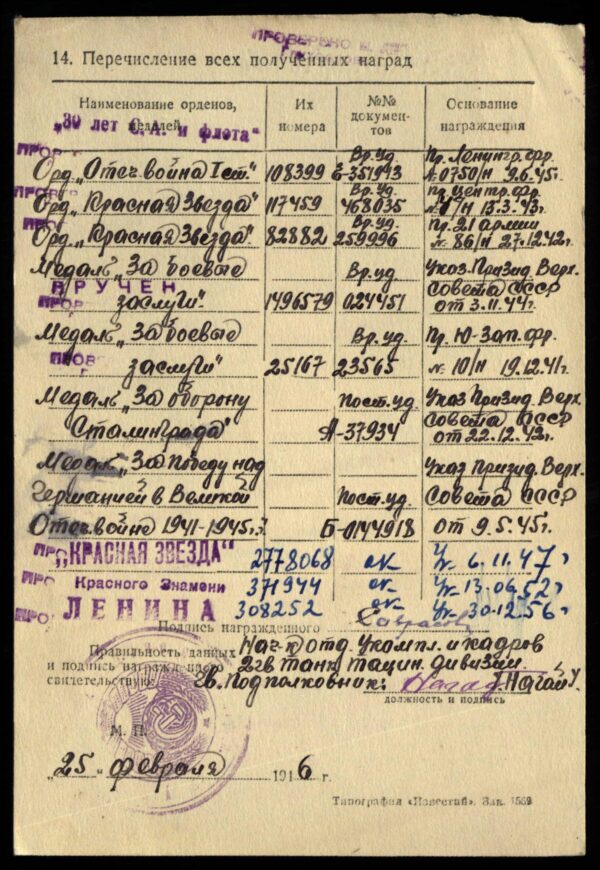 ПРОВЕРЕНО
14. Перечисление всех полученных наград
Наименование орденов, медалей
Их номера
№№ документов
Основание награждения
"30 лет С.А. и флота"
Орд. „Отеч. война I ст." 108399 Вр. уд. Б-351943 Пр. Ленингр. фр. № 0750/н 9.6.45г.
Орд. „Красная Звезда" 117459 Вр. уд. 468035 Пр. Центр. фр. 13.3.43г.
Орд. „Красная Звезда" 82882 Вр. уд. 259996 Пр. 21 армии № 86/н 27.12.42г.
Медаль „За боевые
ВРУЧЕН
заслуги". 1496579 Вр. уд. 024451 Указ. Призид. Верх. Совета СССР от 3.11.44г.
Медаль „За боевые
заслуги" 25167 Вр. уд. 23565 Пр. Ю-Зап. фр. № 10/н 19.12.41г.
Медаль „За оборону
Сталинграда" Пост. уд. А-37934 Указ Призид. Верх. Совета СССР от 22.12.42г.
Медаль „За Победу над
Германией в Великой
Отеч. войне 1941-1945г." Пост. уд. Б-0144918 Указ Призид. Верх. Совета СССР от 9.5.45г.
„КРАСНАЯ ЗВЕЗДА" 2778068 6.11.47г
Красного Знамени 371944 13.06.52г
ЛЕНИНА 308252 30.12.56г
Подпись награжденного
Правильность данных
и подпись награжденного
свидетельствую:
Нач-к отд. укомпл. и кадров
2 гв танк. тацин. дивизии
Гв. Подполковник: /Нагай/
должность и подпись
М. П.
„25" февраля 1946 г.
Типография «Известий». Зак. 1559